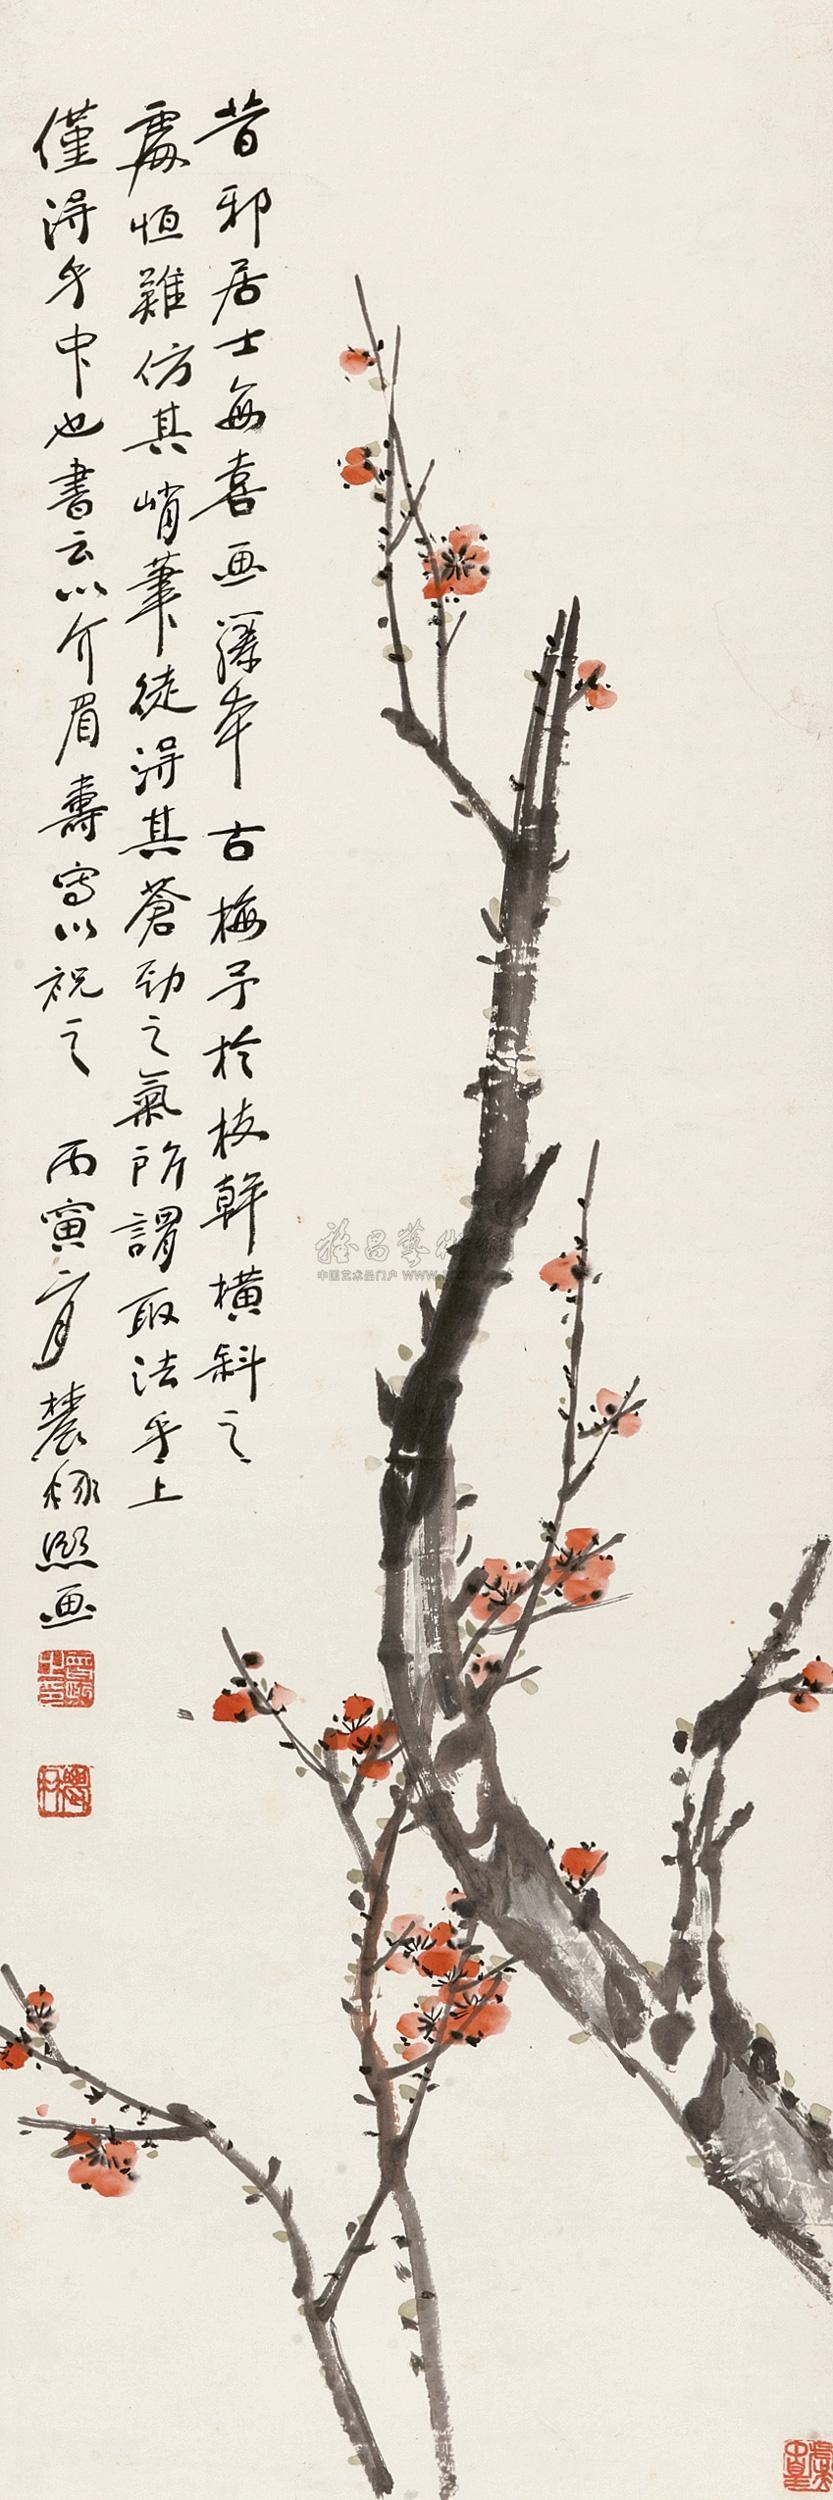 昔邪居士每喜画藤本古梅予於枝幹橫斜之
處恒難仿其峭筆徒得其蒼勁之氣所謂取法乎上
僅得乎中也書云以介眉壽寫以祝之 丙寅二月農 熙画
中国艺术品门户 WWW.